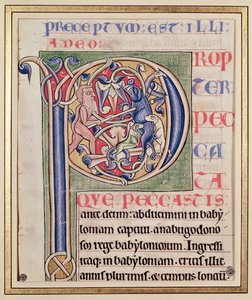 PRECEPTUM : EST : ILLI
A DEO :
PROP
TER
PEC
CA
TA
QUE PECCASTIS
ante deum : abducimini in baby
loniam captiui. anabugodono
sor rege babylonioum. Ingressi
itaq; in babyloniam. eritis illic
annis plurimis. & tempus longū